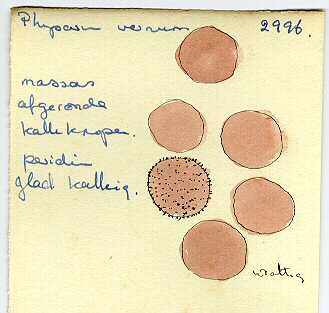 Physarum vernum 2996.
massas
afgeronde
kalkknopen.
peridie
glad kalkig.
wrattig